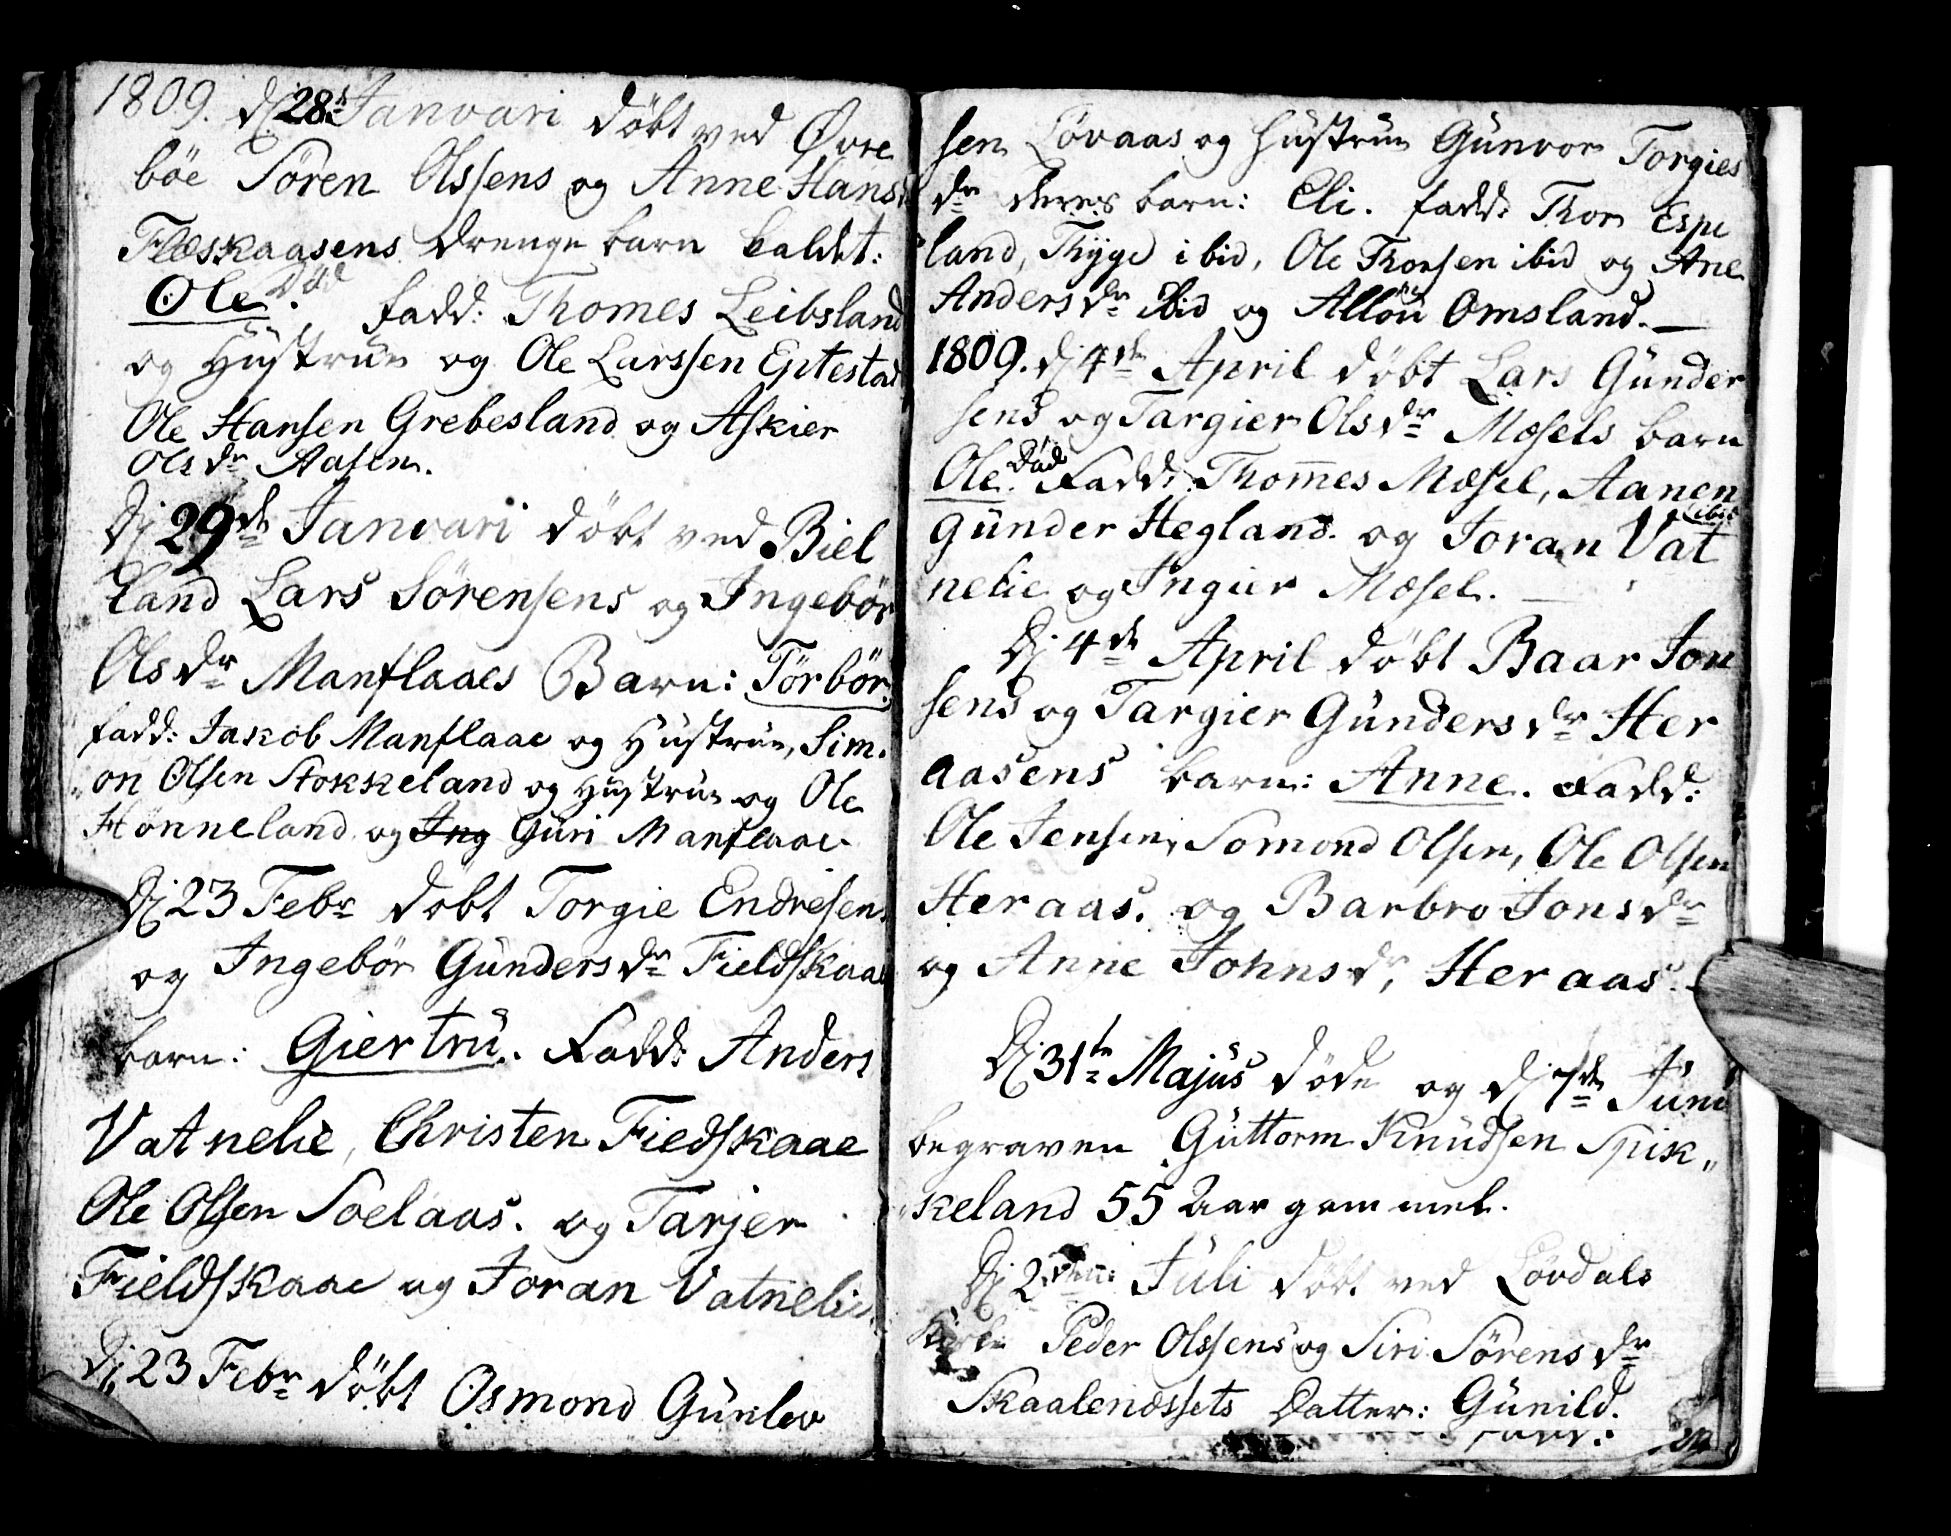 1809. dj 28de Januari döbt ved Øvre
böe Sören Olssens og Anne Hans
Flæskaasens drenge barn kaldet:
Ole. Död fadd: Thomes Leibsland
og Hüstrue og Ole Larssen Eptestad
Ole Hansen Grebesland og Askier
Olsdr Aasen.
Dj 29de Januari döbt ved Biel
land Lars Sörensens og Ingebör
Olsdr Manflaaes Barn: Törbör.
fadd: Jakob Manflaae og Hüstrue, Sim.
on Olsen Stokkeland og Hüstrue og Ole
Hønneland og Ing Güri Manflaae
Dj 23 Febr döbt Torgie Endresens
og Ingebör Gündersdr Fieldskaae
barn: Giertrü. Fadd: Anders
Vatnelie, Christen Fiedskaae
Ole Olsen Soelaas. og Tarjer
Fieldskaae og Joran Vatnelie
Dj 23 Febr döbt Osmond Günlev
sen Lövaas og hüstrue Günvor Torgies
dr deres barn: Eli. fadd: Thor Espe
land, Thyge ibid, Ole Thorsen ibid og Ane
Andersdr ibid og Allou Omsland.
1809. dj 4de April döbt Lars Günder
sens og Targier Olsdr Mæsels barn
Ole. Död Fadd: Thomes Mæsel, Aanen
Günder Hegland. og Joran Vat
nelie og Ingier Mæsel.
Dj 4de April döbt Baar Jon
sens og Targier Gündersdr Her
aasens barn: Anne. Fadd:
Ole Jensen, Somond Olsen, Ole Olsen
Heraas. og Barbro Jonsdr
og Anne Johnsdr, Heraas.
Dj 31te Majüs döde og dj 7de Juni
begraven Güttorm Knüdsen Spik„
keland 55 Aar gammel.
Dj 2den Jüli döbt ved Lövdals
Kirke Peder Olssens og Siri Sörensdr
Skaalenæssets Datter: Günild.
fadd: